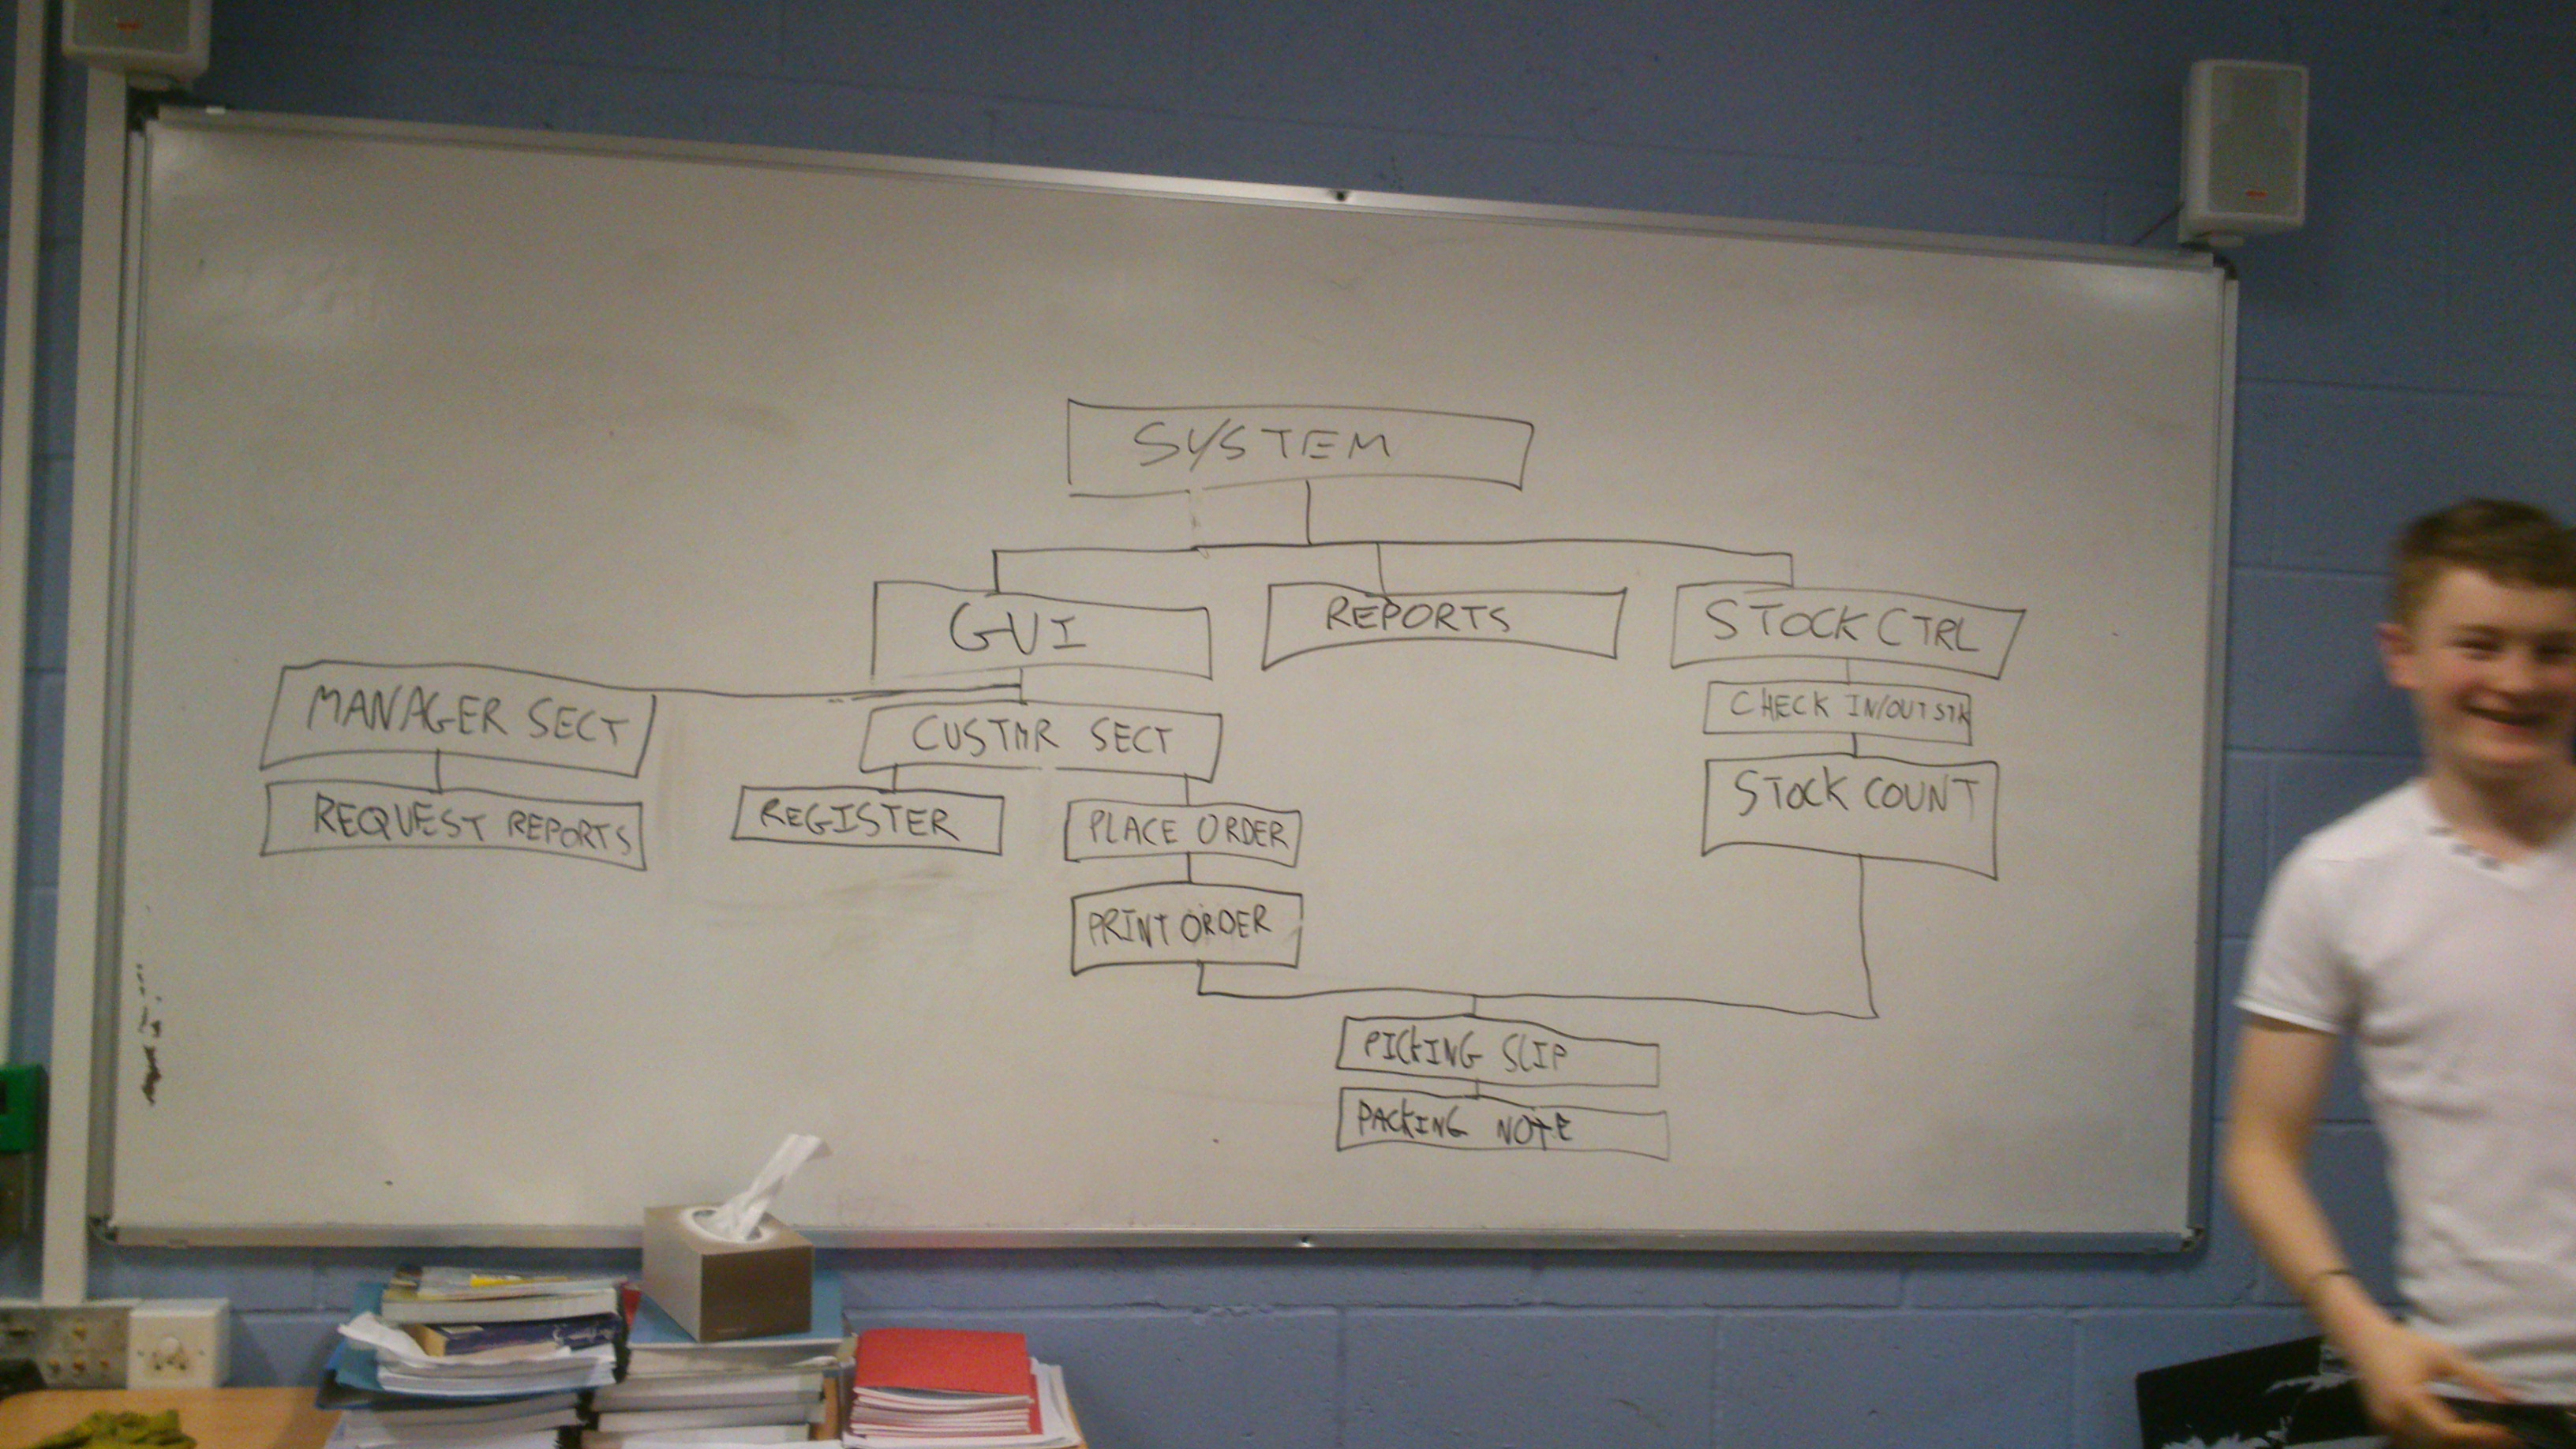 SYSTEM
GUI
REPORTS
STOCK CTRL
MANAGER SECT
CUSTMR SECT
CHECK IN/OUT STK
REQUEST REPORTS
REGISTER
PLACE ORDER
STOCK COUNT
PRINT ORDER
PICKING SLIP
PACKING NOTE